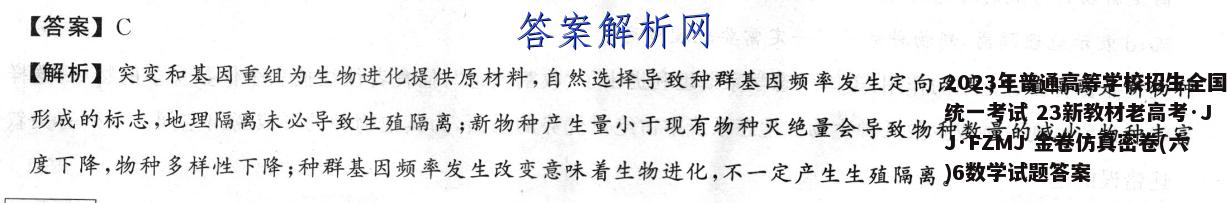 【答案】C
答案解析网
【解析】突变和基因重组为生物进化提供原材料,自然选择导致种群基因频率发生定向
形成的标志,地理隔离未必导致生殖隔离;新物种产生量小于现有物种灭绝量会导致物种数量的减少,物种丰富
度下降,物种多样性下降;种群基因频率发生改变意味着生物进化,不一定产生生殖隔离。
2023年普通高等学校招生全国
统一考试 23新教材老高考·J
J·FZMJ 金卷仿真密卷(六
)6数学试题答案